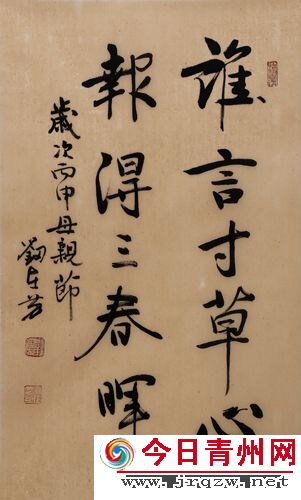 誰言寸草心
報得三春暉
歲次丙申母親節
今日青州网
www.jrqzw.net